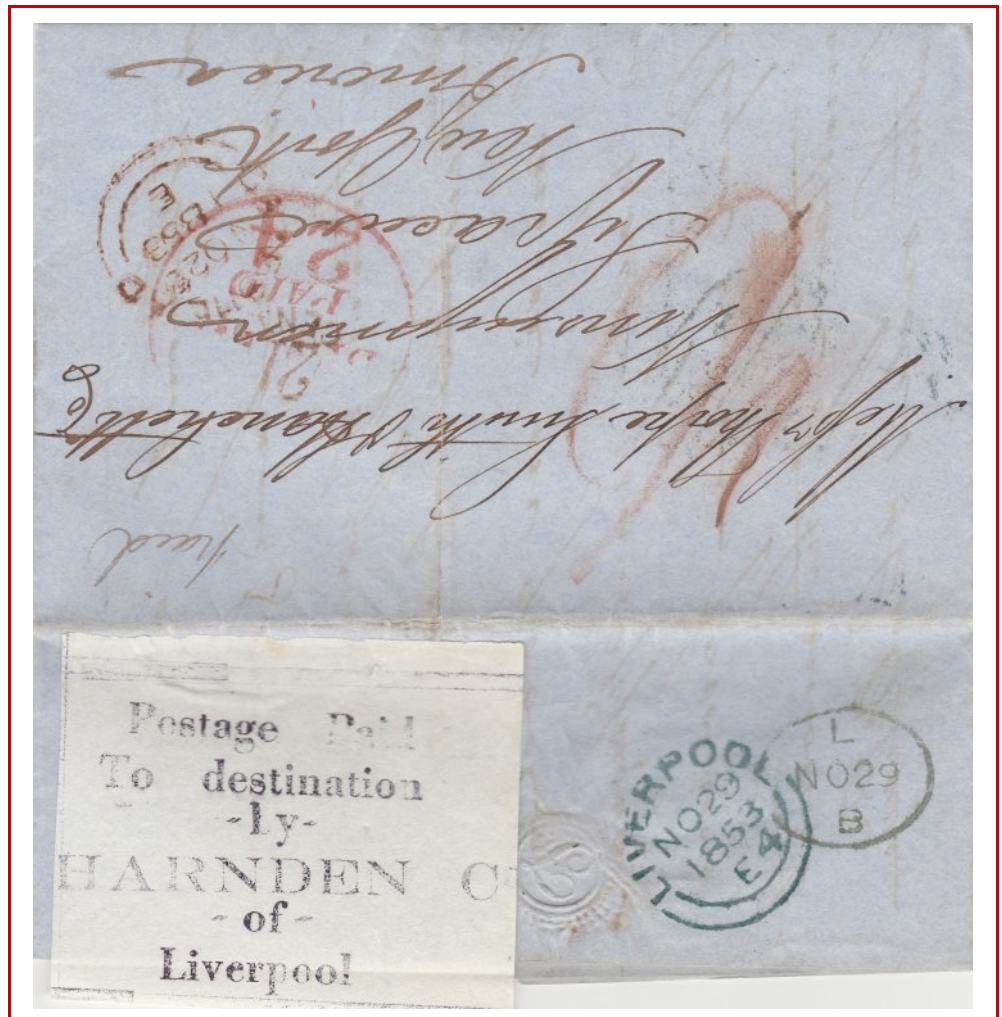 paid
Messrs Thorpe Smith & Hanchett
Syracuse
New York
America
PAID
24
1853
E
Postage Paid
To destination
-by-
HARNDEN Co
-of-
Liverpool
LIVERPOOL
NO 29
1853
E 4
L
NO 29
B